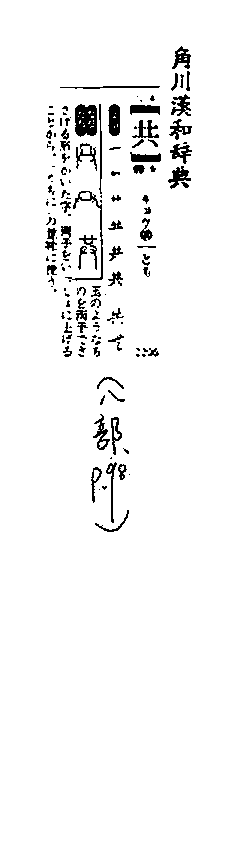 角川漢和辞典
共
キョウ
とも
玉のようなも
のを両手でさ
さげる形をかいた字。両手をいっしょに上げる
ことから、「ともに」の意味に使う。
(八部、
P.98)